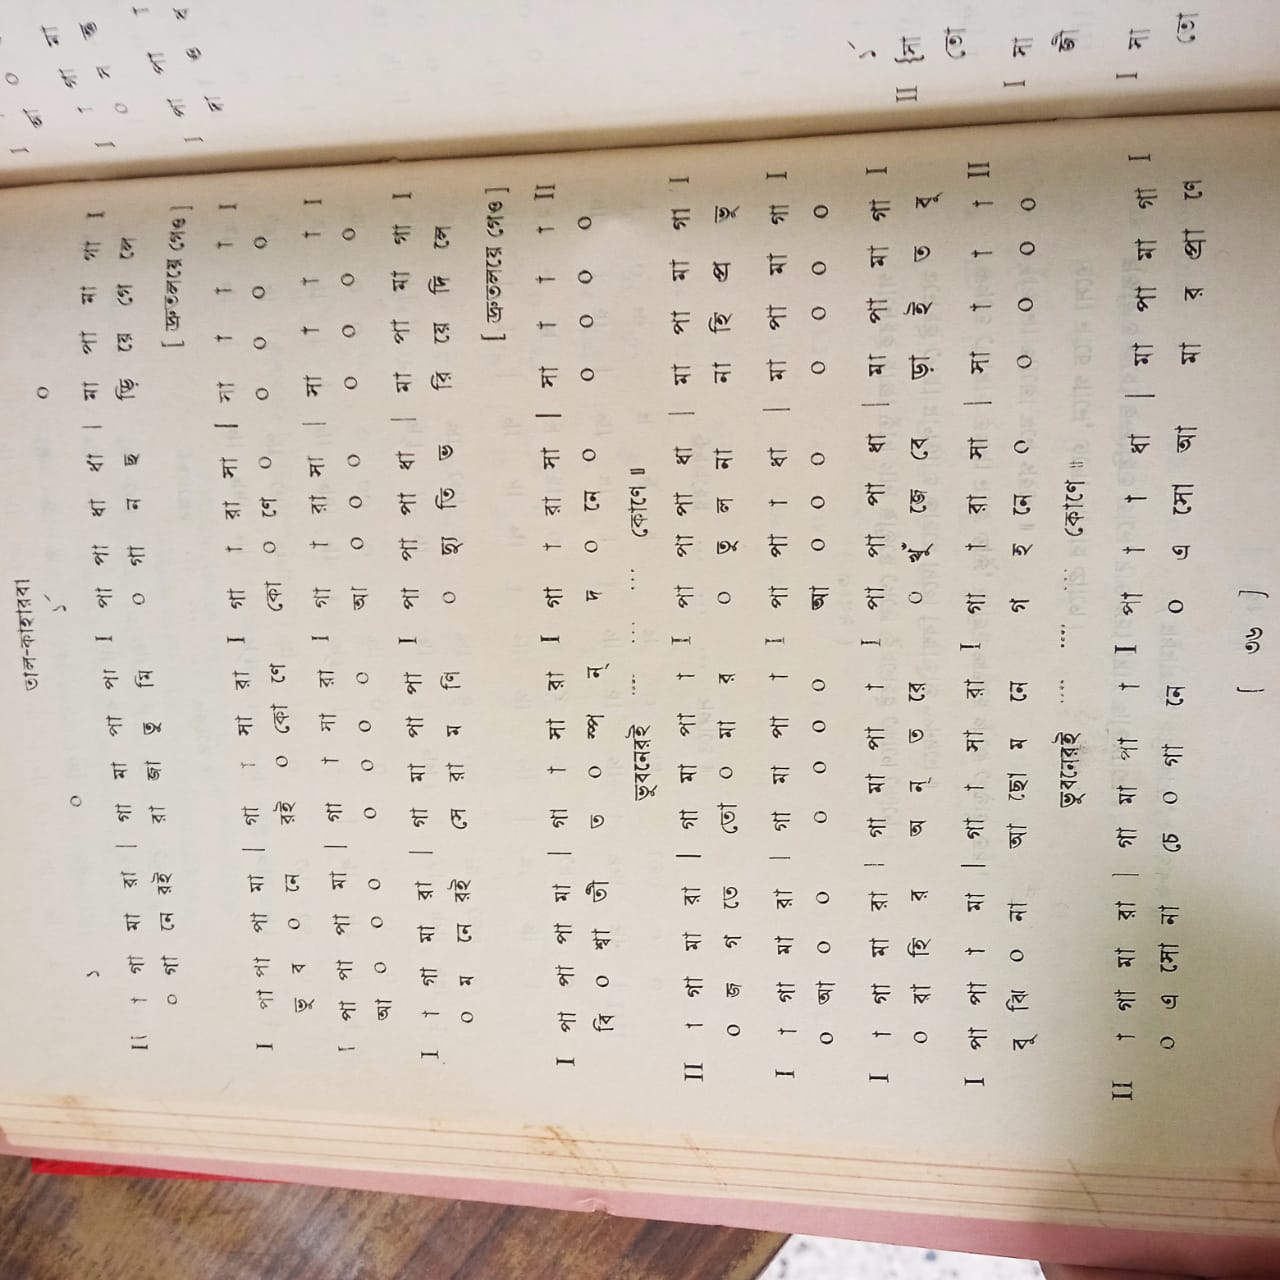 তাল-কাহারবা
১´ ০ ১´ ০
II † গা মা রা | গা মা পা পা I পা পা ধা ধা | মা পা মা গা I
০ গা নে রই রা জা তু মি ০ গা ন ছ ড়ি য়ে গে লে
[ দ্রুতলয়ে গেও ]
I পা পা পা মা | গা † মা রা I গা † রা সা | সা † † † I
ভু ব ০ নে রই ০ কো ণে কো ০ ণে ০ ০ ০ ০ ০
I পা পা পা মা | গা † মা রা I গা † রা সা | সা † † † I
আ ০ ০ ০ ০ ০ ০ ০ আ ০ ০ ০ ০ ০ ০ ০
I † গা মা রা | গা মা পা পা I পা পা পা ধা | মা পা মা গা I
০ ম নে রই সে রা ম ণি ০ দ্যু তি ভ রি য়ে দি লে
[ দ্রুতলয়ে গেও ]
I পা পা পা মা | গা † মা রা I গা † রা সা | সা † † † II
বি ০ শ্বা তী ত ০ স্প ন্ দ ০ নে ০ ০ ০ ০ ০
ভুবনেরই .... ... ... কোণে ॥
II † গা মা রা | গা মা পা † I পা পা পা ধা | মা পা মা গা I
০ জ গ তে তো ০ মা র ০ তু ল না না হি প্র ভু
I † গা মা রা | গা মা পা † I পা পা † ধা | মা পা মা গা I
০ আ ০ ০ ০ ০ ০ ০ আ ০ ০ ০ ০ ০ ০ ০
I † গা মা রা | গা মা পা † I পা পা পা ধা | মা পা মা গা I
০ রা হি র অ ন্ ত রে ০ খুঁ জে বে ড়া ই ত বু
I পা পা † মা | গা † মা রা I গা † রা সা | সা † † † II
বু ঝি ০ না আ ছো ম নে গ হ নে ০ ০ ০ ০ ০
ভুবনেরই .... .... ... কোণে ॥
II † গা মা রা | গা মা পা † I পা † † ধা | মা পা মা গা I
০ এ সো না চে ০ গা নে ০ এ সো আ মা র প্রা ণে
[ ৩৬ ]